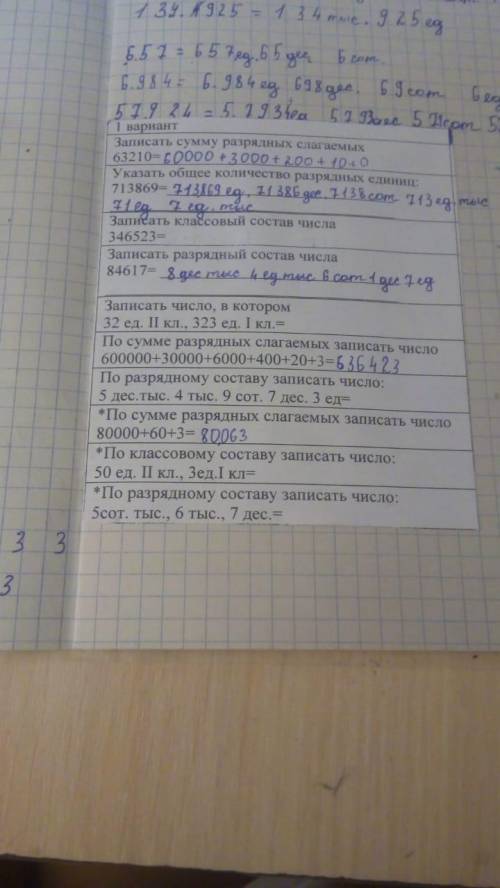 134.925 = 134тыс. 925 ед
657 = 657ед. 65 дес 6 сот.
6.984 = 6.984 ед 698 дес. 69 сот 6 ед
1 вариант
Записать сумму разрядных слагаемых
63210= 60000 + 3000 + 200 + 10 + 0
Указать общее количество разрядных единиц:
713869= 713869 ед, 71386 дес, 7138 сот 713 ед. тыс
71 ед 7 ед. тыс
Записать классовый состав числа
346523=
Записать разрядный состав числа
84617= 8 дес тыс 4 ед тыс 6 сот 1 дес 7 ед
Записать число, в котором
32 ед. II кл., 323 ед. I кл.=
По сумме разрядных слагаемых записать число
600000+30000+6000+400+20+3= 636423
По разрядному составу записать число:
5 дес.тыс. 4 тыс. 9 сот. 7 дес. 3 ед=
*По сумме разрядных слагаемых записать число
80000+60+3= 80063
*По классовому составу записать число:
50 ед. II кл., 3ед.I кл=
*По разрядному составу записать число:
5сот. тыс., 6 тыс., 7 дес.=
3 3
3